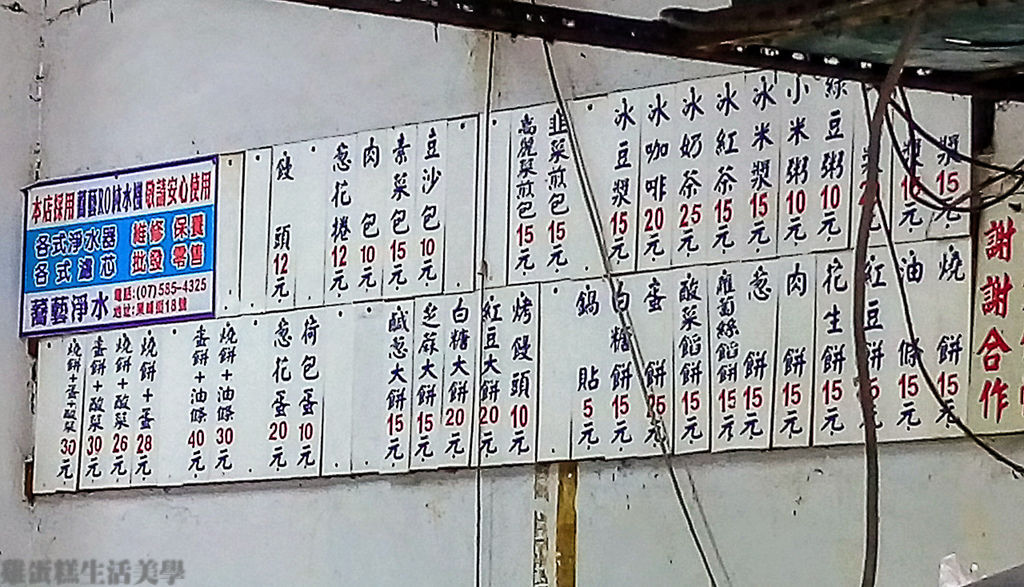 漿15元
漿15元
漿
綠豆粥10元
小米粥10元
冰米漿15元
冰紅茶15元
冰奶茶25元
冰咖啡20元
冰豆漿15元
韭菜煎包15元
高麗菜煎包15元
豆沙包10元
素菜包15元
肉包10元
葱花捲12元
饅頭12元
燒餅15元
油條15元
紅豆餅15元
花生餅15元
肉餅15元
葱餅15元
蘿蔔絲餡餅15元
酸菜餡餅15元
蛋餅25元
白糖餅15元
鍋貼5元
烤饅頭10元
紅豆大餅20元
白糖大餅20元
芝蔴大餅15元
鹹葱大餅15元
荷包蛋10元
葱花蛋20元
燒餅+油條30元
蛋餅+油條40元
燒餅+蛋28元
燒餅+酸菜26元
蛋餅+酸菜30元
燒餅+蛋+酸菜30元
謝謝合作
本店採用蕎藝RO純水機 敬請安心使用
各式淨水器 維修 保養
各式濾芯 批發 零售
蕎藝淨水 電話:(07)585-4325
雞蛋糕生活美學